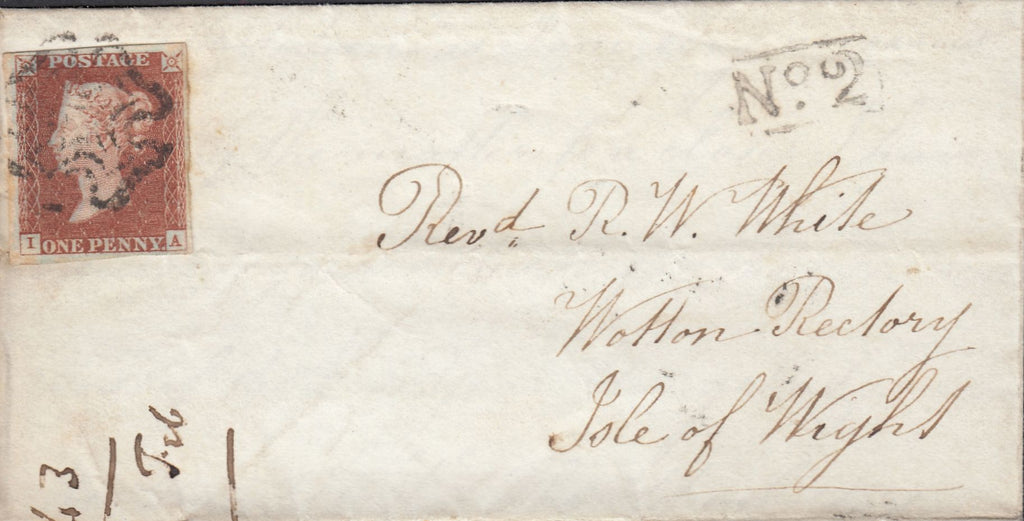 POSTAGE
I ONE PENNY A
No. 2
Revd. R. W. White
Wotton Rectory
Isle of Wight
Feb
43